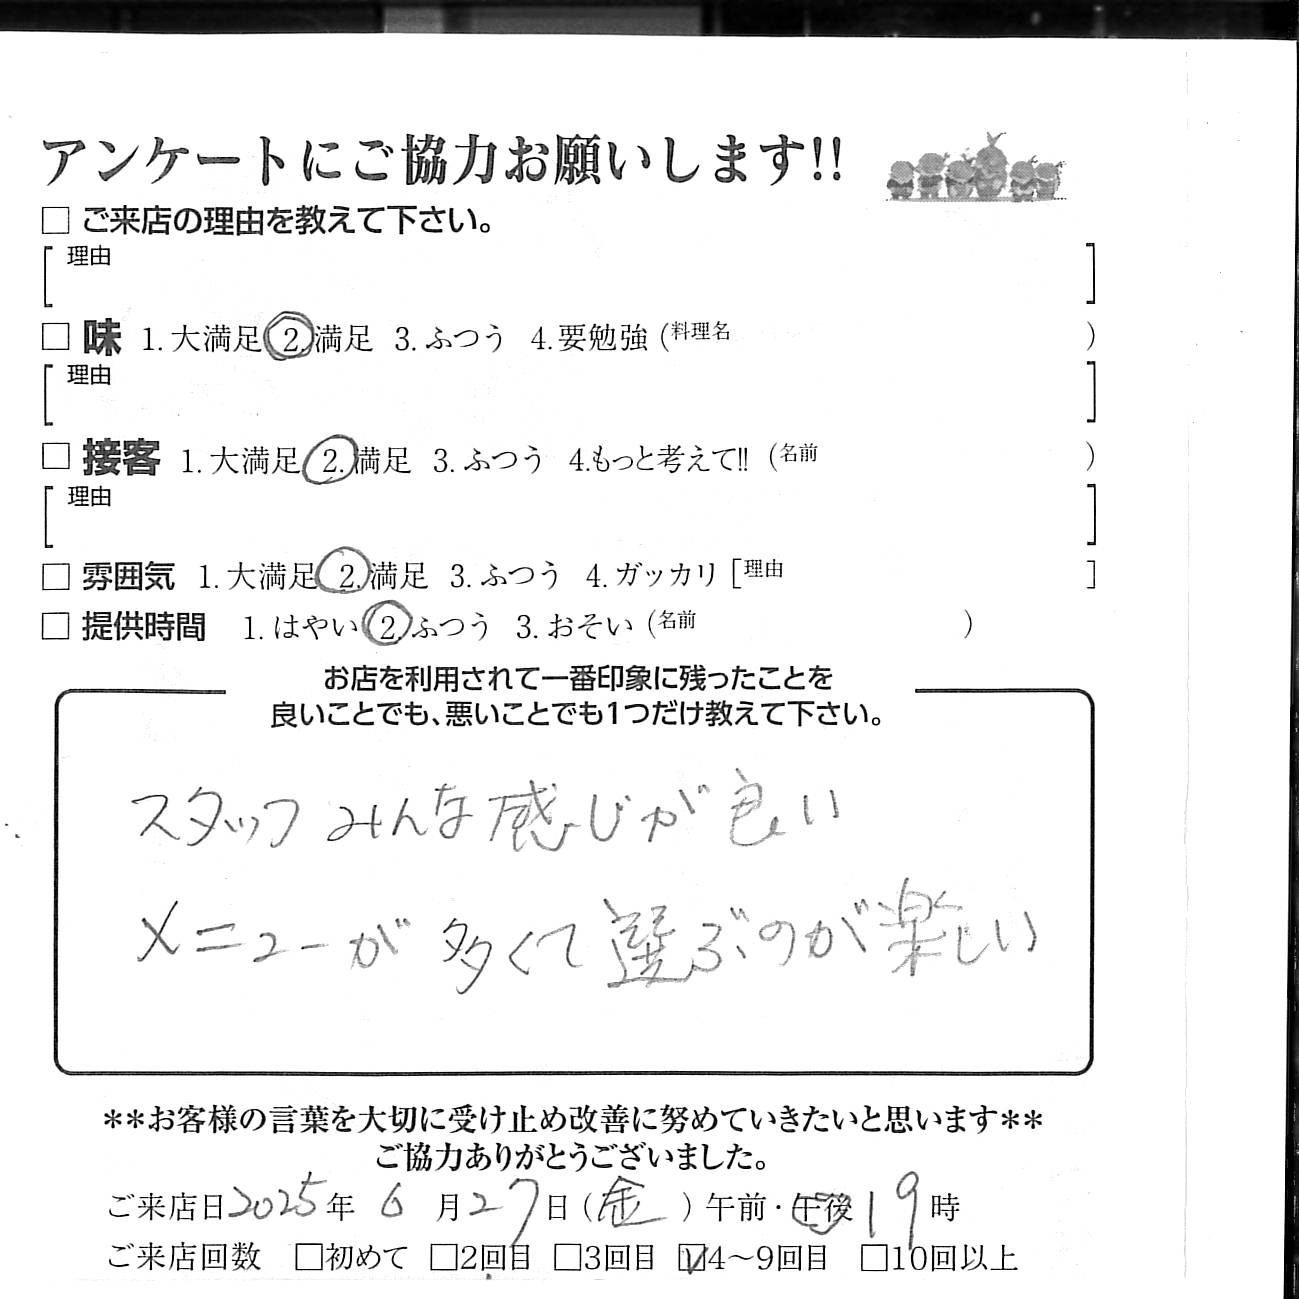 アンケートにご協力お願いします!!
□ ご来店の理由を教えて下さい。
[理由 ]
□ 味 1.大満足 2.満足 3.ふつう 4.要勉強 (料理名 )
[理由 ]
□ 接客 1.大満足 2.満足 3.ふつう 4.もっと考えて!! (名前 )
[理由 ]
□ 雰囲気 1.大満足 2.満足 3.ふつう 4.ガッカリ [理由 ]
□ 提供時間 1.はやい 2.ふつう 3.おそい (名前 )
お店を利用されて一番印象に残ったことを
良いことでも、悪いことでも1つだけ教えて下さい。
スタッフみんな感じが良い
メニューが多くて選ぶのが楽しい
**お客様の言葉を大切に受け止め改善に努めていきたいと思います**
ご協力ありがとうございました。
ご来店日2025年 6月27日(金)午前・午後19時
ご来店回数 □初めて □2回目 □3回目 ☑4～9回目 □10回以上